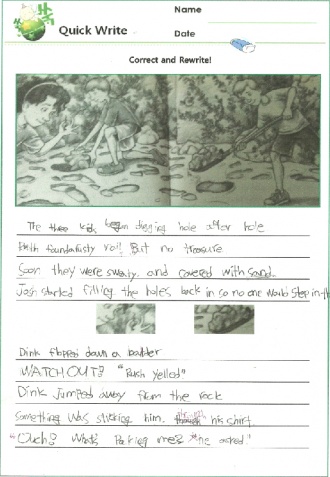 Quick Write
Name
Date
Correct and Rewrite!
The three kids began digging hole after hole
Ruth found a rusty nail But no treasure
Soon they were sweaty and covered with sand.
Josh started filling the holes back in so no one would step in th
Dink flopped down on a bolder
WATCH OUT! "Ruth yelled"
Dink Jumped away from the rock
Something was sticking him. through his shirt.
"Ouch! What's Poking me? "he asked"